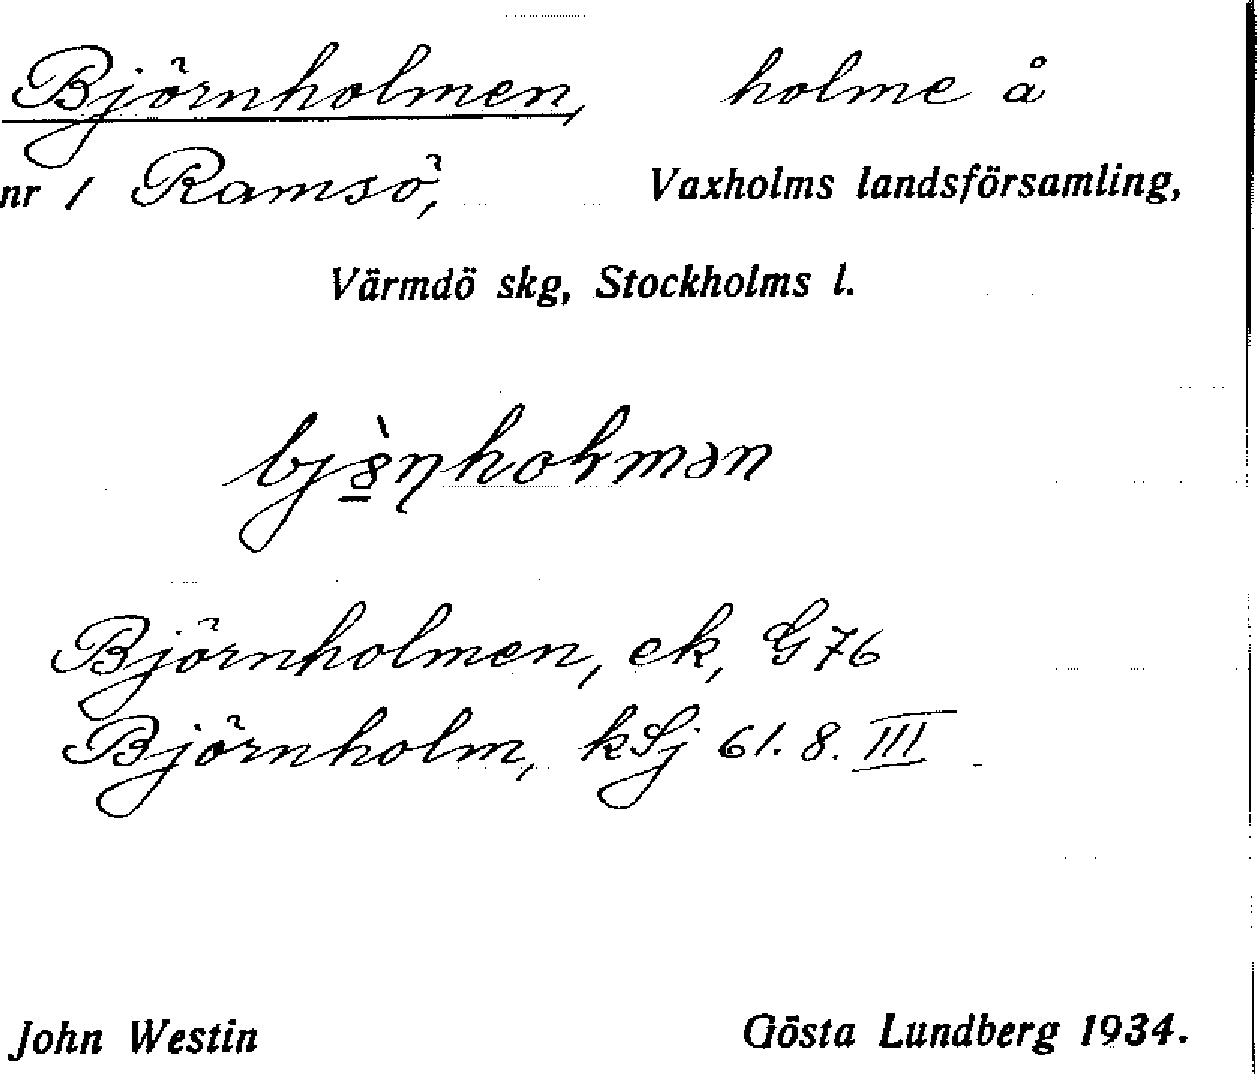 Björnholmen, holme å
nr 1 Ramsö, Vaxholms landsförsamling,
Värmdö skg, Stockholms l.
Björnholmen, ek, G 76
Björnholm, kSj 61. 8. III
John Westin Gösta Lundberg 1934.